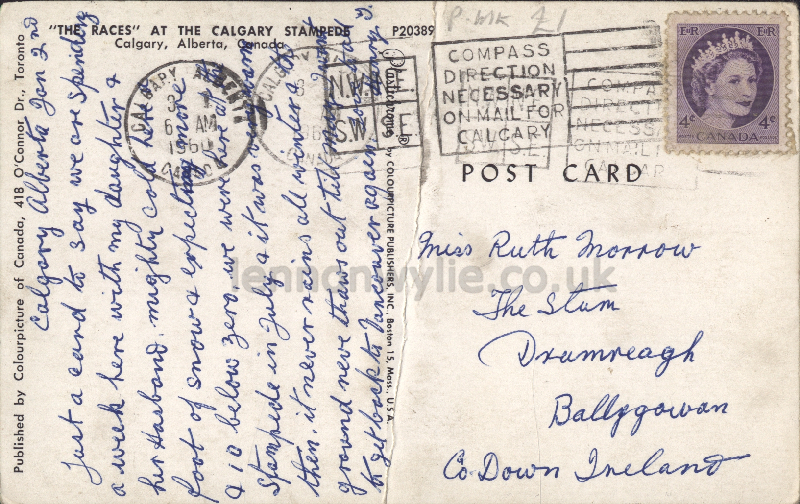 "THE RACES" AT THE CALGARY STAMPEDE
Calgary, Alberta, Canada
P20389
P. MK £1
Published by Colourpicture of Canada, 418 O'Connor Dr., Toronto
Calgary Alberta Jan 2nd
Just a card to say we are spending
a week here with my daughter &
her Husband. mighty cold here. 1
foot of snow & expecting more
& 10 below zero. we were here at the
Stampede in July & it was very warm
then. it never rains all winter & the
ground neve thaws out till may. I want
to get back to Vancouver again.
Plastichrome
by COLOURPICTURE PUBLISHERS, INC. Boston 15, Mass., U.S.A.
CALGARY ALBERTA
6 AM
1960
CANADA
N.W.
S.W.
COMPASS
DIRECTION
NECESSARY
ON MAIL FOR
CALGARY
E II R E II R
4c 4c
CANADA
POST CARD
Miss Ruth Morrow
The Stum
Drumreagh
Ballygowan
Co. Down Ireland
lennonwylie.co.uk